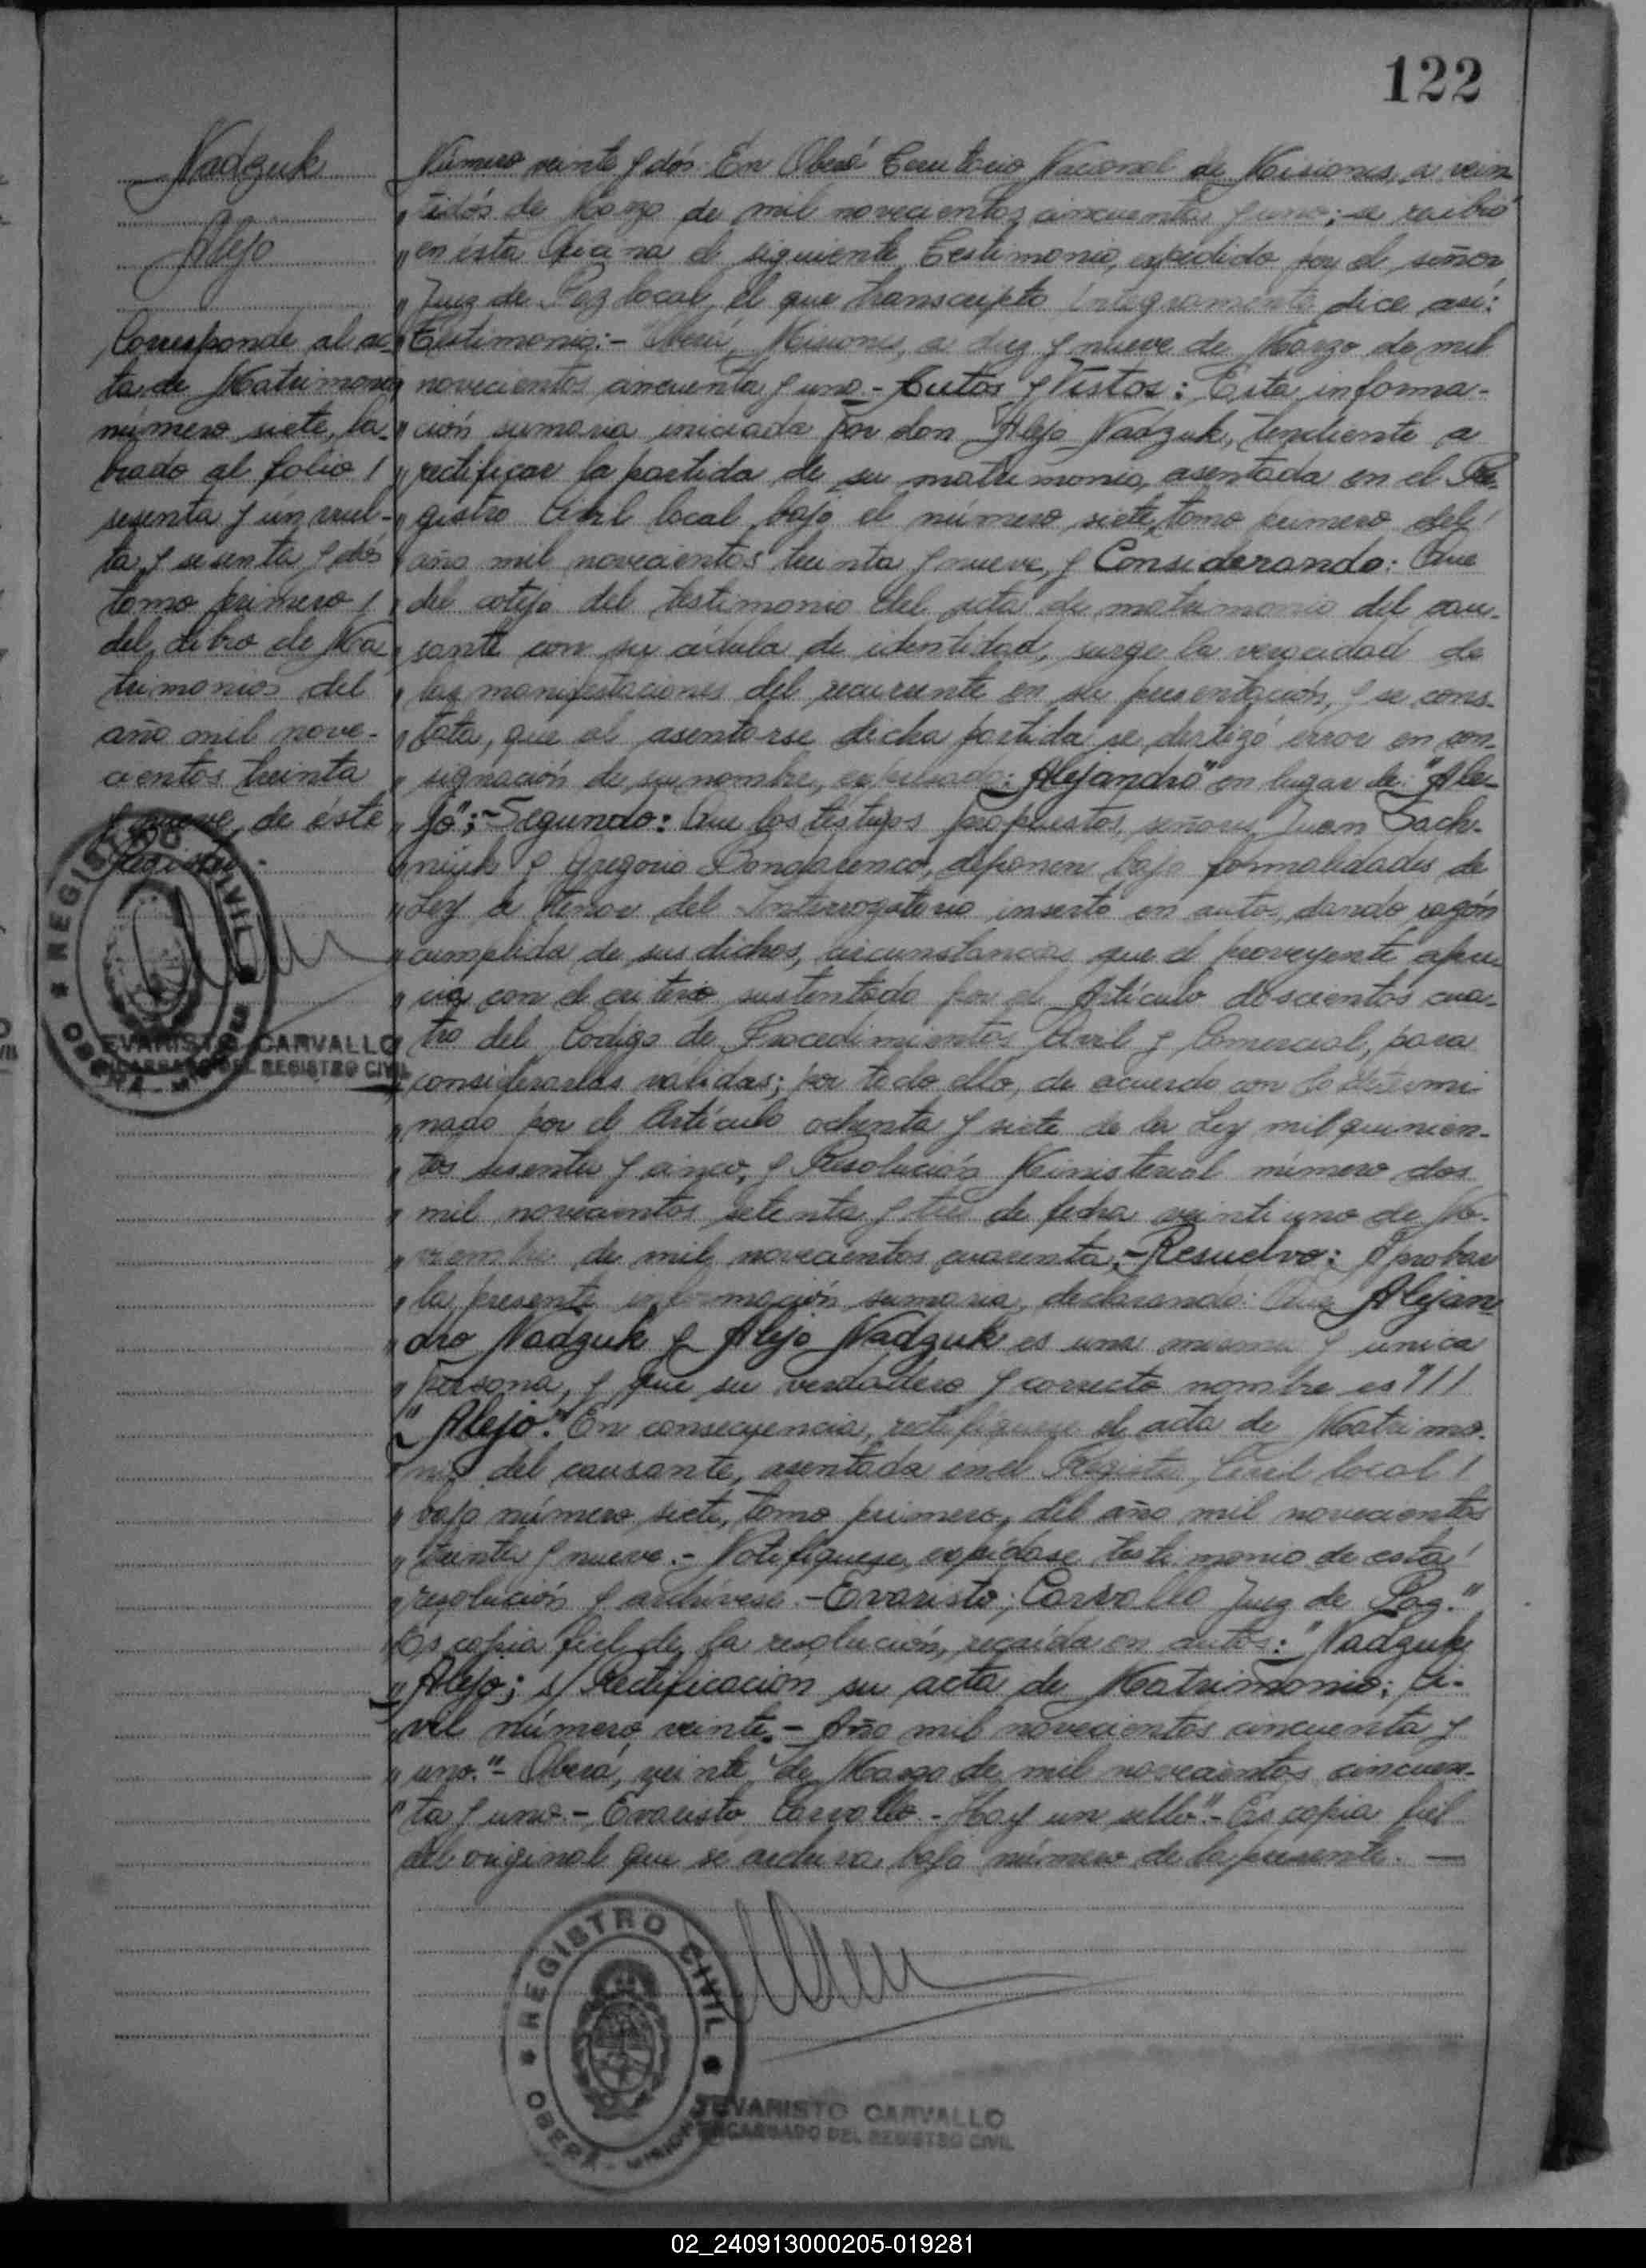 122
Nadzuk
Alejo
Corresponde al ac-
ta de Matrimonio
número siete, la-
brado al folio /
sesenta y un vuel-
ta y sesenta y dós
tomo primero /
del libro de Ma
trimonios del
año mil nove-
cientos treinta
y nueve, de éste
Registro.-
REGISTRO CIVIL
OBERÁ - MISIONES
EVARISTO CARVALLO
ENCARGADO DEL REGISTRO CIVIL
Número veinte y dós. En Oberá Territorio Nacional de Misiones, a vein
" tidós de Marzo de mil novecientos cincuenta y uno; se recibió
" en ésta Oficina el siguiente Testimonio, expedido por el señor
" Juez de Paz local, el que transcripto íntegramente dice así:
" Testimonio:- Oberá, Misiones, a diez y nueve de Marzo de mil
" novecientos cincuenta y uno.- Autos y Vistos: Esta informa-
" ción sumaria iniciada por don Alejo Nadzuk, tendiente a
" rectificar la partida de su matrimonio, asentada en el Re-
" gistro Civil local, bajo el número siete, tomo primero del /
" año mil novecientos treinta y nueve, y Considerando: Que
" del cotejo del testimonio del acta de matrimonio del cau-
" sante con su cédula de identidad, surge la veracidad de
" las manifestaciones del recurrente en su presentación, y se cons-
" tata, que al asentarse dicha partida se deslizó error en con-
" signación de su nombre, expresado: Alejandro" en lugar de: "Ale-
" jo";- Segundo: Que los testigos propuestos, señores Juan Sach-
niuk y Gregorio Bondarenco, deponen bajo formalidades de
" Ley a tenor del Interrogatorio inserto en autos, dando razón
" cumplida de sus dichos, circunstancias que el proveyente apre-
" cia con el criterio sustentado por el Artículo doscientos cua-
" tro del Código de Procedimientos Civil y Comercial, para
" considerarlas validas; por todo ello, de acuerdo con lo determi
" nado por el Artículo ochenta y siete de la Ley mil quinien-
" tos sesenta y cinco, y Resolución Ministerial número dos
" mil novecientos setenta y tres de fecha veintiuno de No-
" viembre de mil novecientos cuarenta;- Resuelvo: Aprobar
" la presente información sumaria, declarando: Que Alejan
" dro Nadzuk y Alejo Nadzuk es una misma y unica
" persona, y que su verdadero y correcto nombre es ///
" "Alejo." En consecuencia, rectifíquese el acta de Matrimo-
" nio del causante, asentada en el Registro Civil local /
" bajo número siete, tomo primero, del año mil novecientos
" treinta y nueve.- Notifíquese, expídase testimonio de esta /
" resolución y archívese.- Evaristo Carvallo Juez de Paz."
Es copia fiel de la resolución, recaída en autos: "Nadzuk
" Alejo; s/ Rectificacion su acta de Matrimonio; Ci-
" vil número veinte.- Año mil novecientos cincuenta y
" uno."- Oberá, veinte de Marzo de mil novecientos cincuen-
" ta y uno.- Evaristo Carvallo.- Hay un sello".- Es copia fiel
del original que se archiva bajo número de la presente. —
REGISTRO CIVIL
OBERÁ - MISIONES
EVARISTO CARVALLO
ENCARGADO DEL REGISTRO CIVIL
02_240913000205-019281